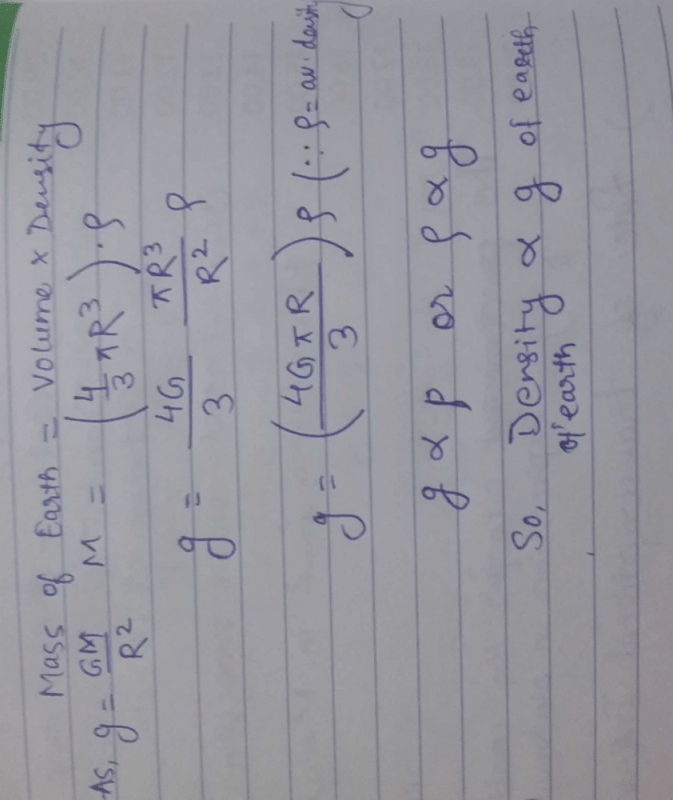 Mass of Earth = Volume x Density
As, g = GM/R² M = (4/3 πR³).ρ
g = 4G/3 πR³/R² ρ
g = (4GπR/3) ρ (∵ ρ = av. density
g ∝ p or ρ ∝ g
So, Density ∝ g of earth
of earth